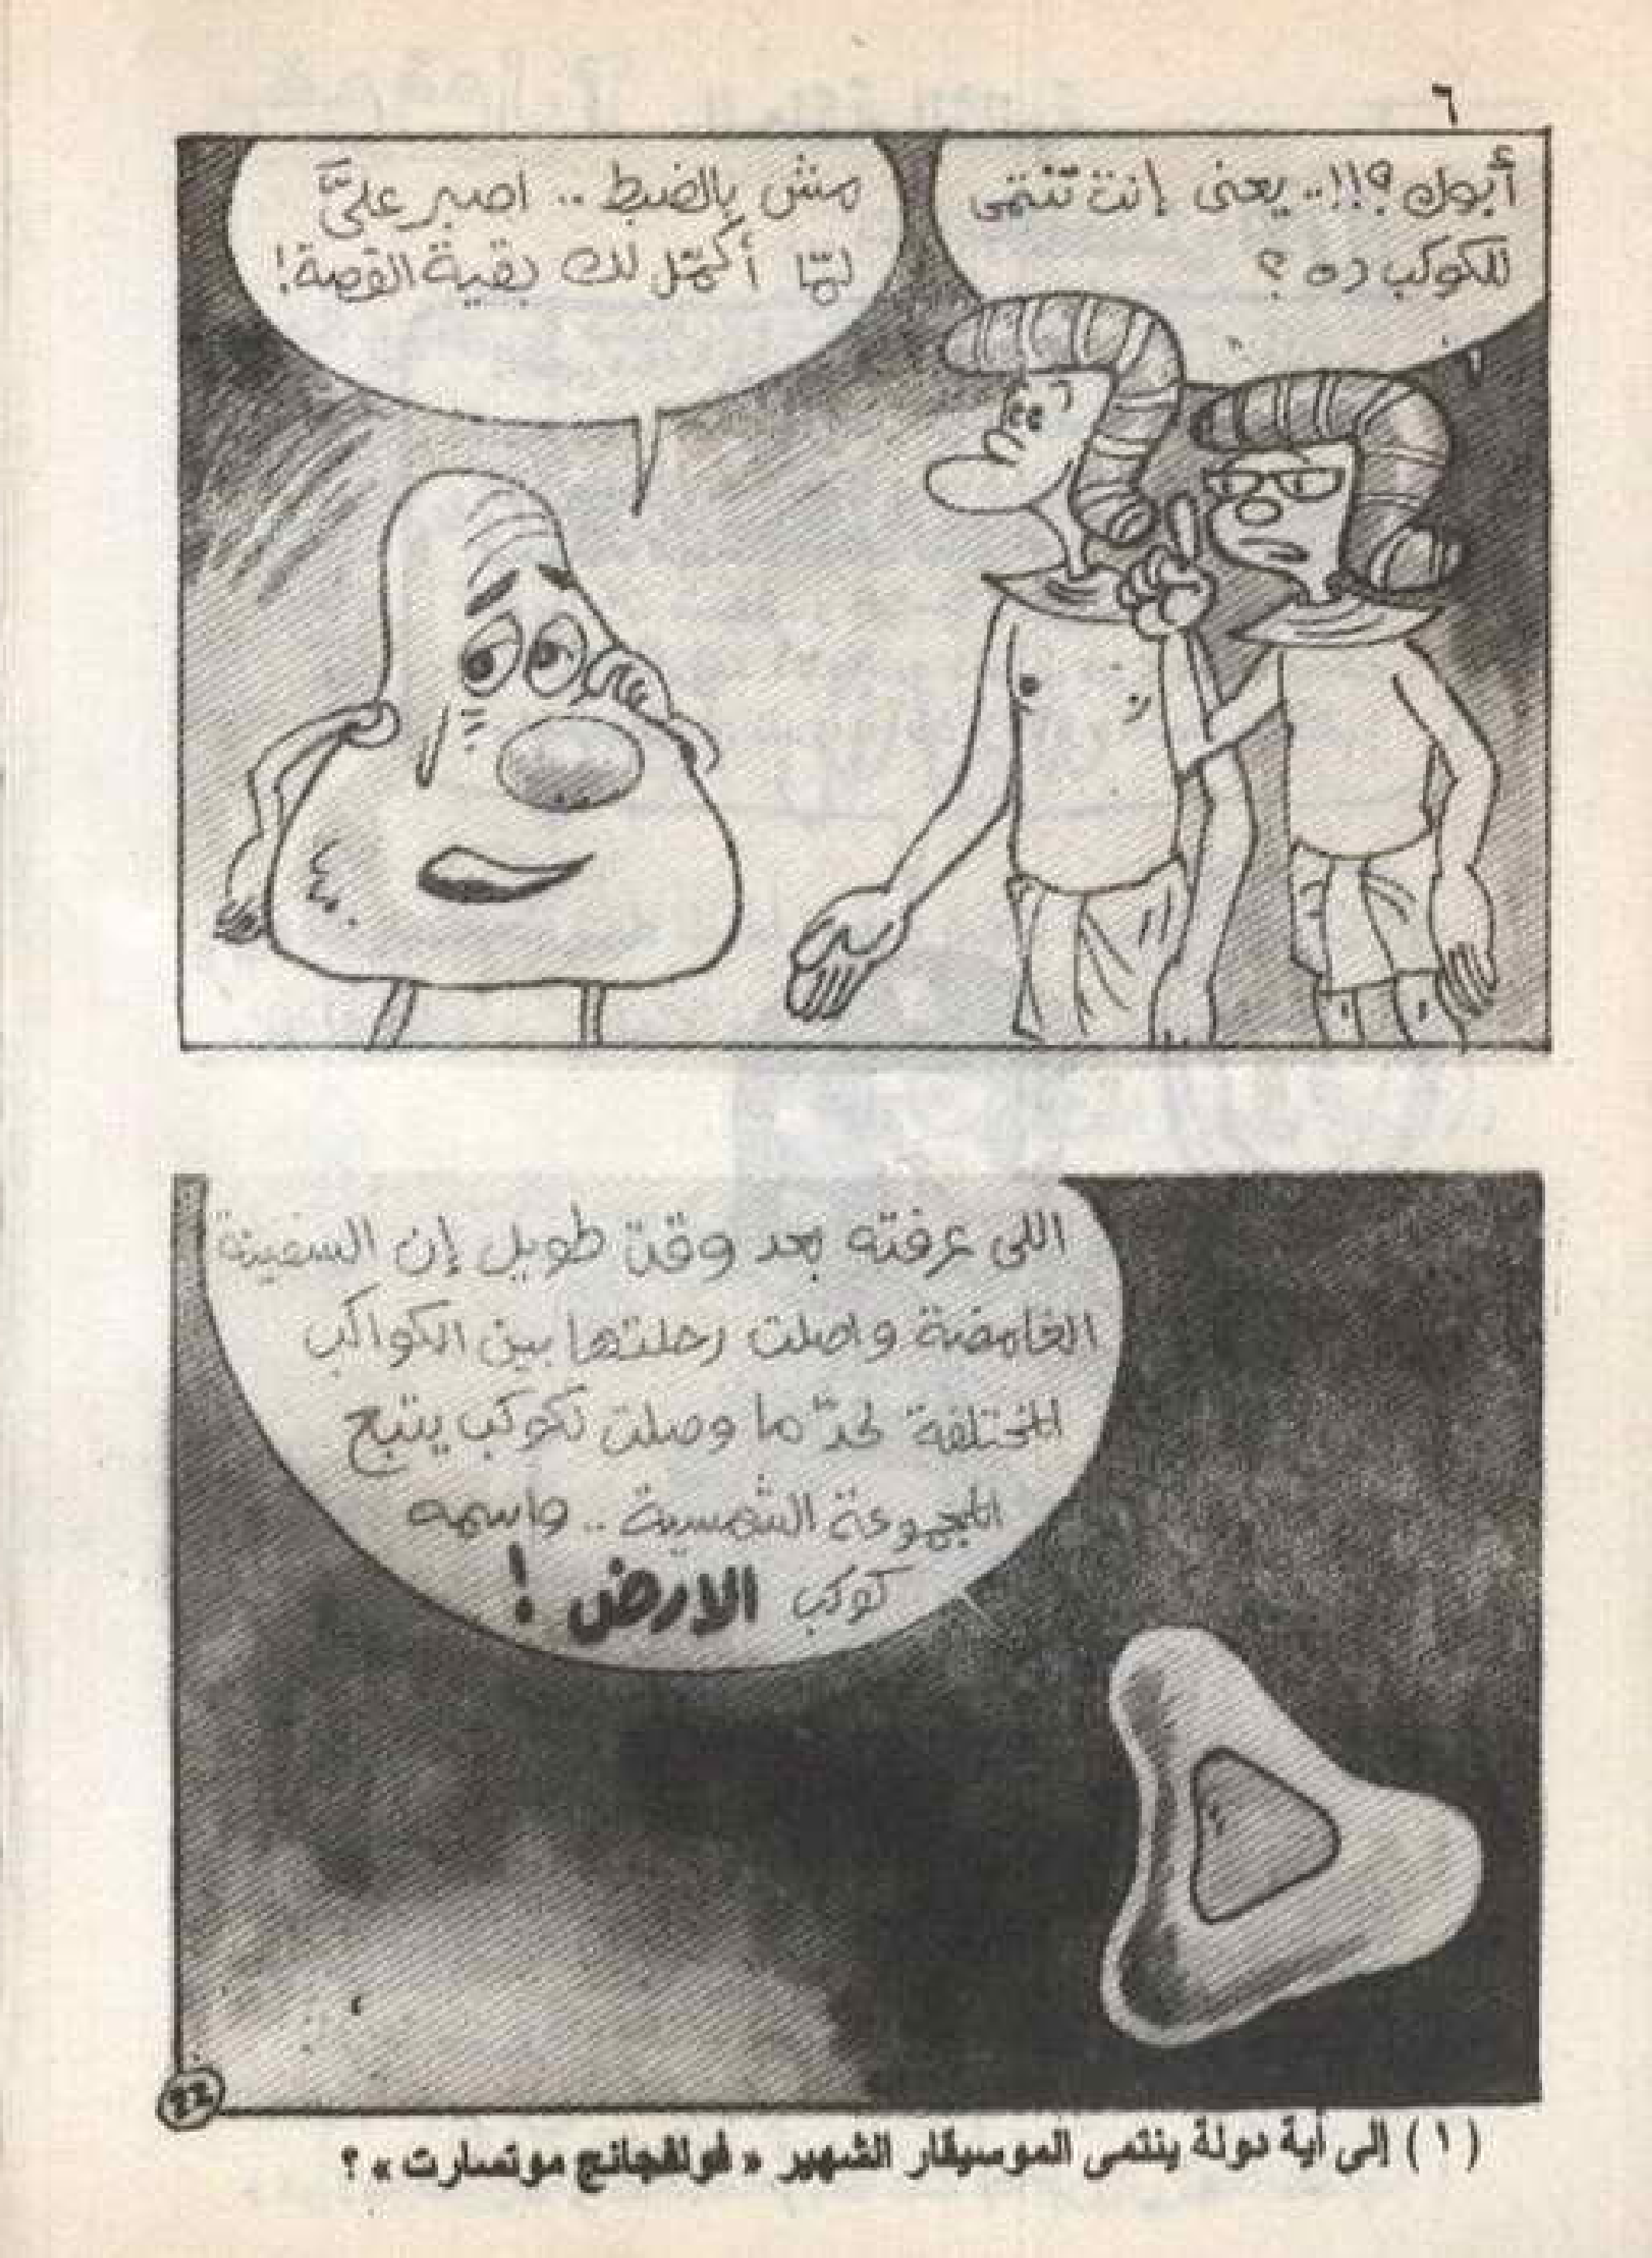 ٦
أبوك ؟!!.. يعنى إنت تنتمى
للكوكب ده ؟
مش بالضبط .. اصبر علىَّ
لمّا أكمّل لك بقية القصة!
اللى عرفته بعد وقت طويل إن السفينة
الغامضة واصلت رحلتها بين الكواكب
المختلفة لحدّ ما وصلت لكوكب يتبع
المجموعة الشمسية .. واسمه
كوكب الارض !
( ١ ) إلى أية دولة ينتمى الموسيقار الشهير « فولفجانج موتسارت » ؟